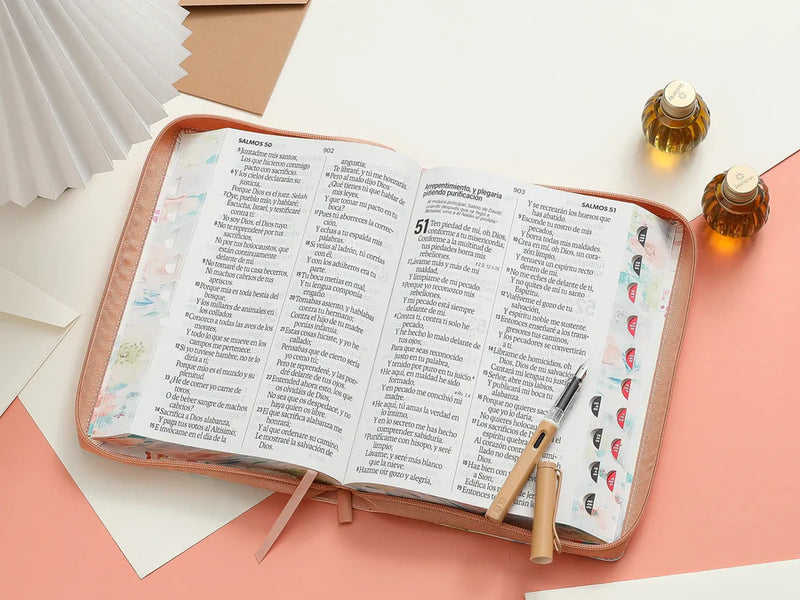 SALMOS 50
902
5 Juntadme mis santos,
Los que hicieron conmigo
pacto con sacrificio.
6 Y los cielos declararán su
justicia,
Porque Dios es el juez. Selah
7 Oye, pueblo mío, y hablaré;
Escucha, Israel, y testificaré
contra ti:
Yo soy Dios, el Dios tuyo.
8 No te reprenderé por tus
sacrificios,
Ni por tus holocaustos, que
están continuamente
delante de mí.
9 No tomaré de tu casa becerros,
Ni machos cabríos de tus
apriscos.
10 Porque mía es toda bestia del
bosque,
Y los millares de animales en
los collados.
11 Conozco a todas las aves de los
montes,
Y todo lo que se mueve en los
campos me pertenece.
12 Si yo tuviese hambre, no te lo
diría a ti;
Porque mío es el mundo y su
plenitud.
13 ¿He de comer yo carne de
toros,
O de beber sangre de machos
cabríos?
14 Sacrifica a Dios alabanza,
Y paga tus votos al Altísimo;
15 E invócame en el día de la
angustia;
Te libraré, y tú me honrarás.
16 Pero al malo dijo Dios:
¿Qué tienes tú que hablar de
mis leyes,
Y que tomar mi pacto en tu
boca?
17 Pues tú aborreces la correc-
ción,
Y echas a tu espalda mis
palabras.
18 Si veías al ladrón, tú corrías
con él,
Y con los adúlteros era tu
parte.
19 Tu boca metías en mal,
Y tu lengua componía
engaño.
20 Tomabas asiento, y hablabas
contra tu hermano;
Contra el hijo de tu madre
ponías infamia.
21 Estas cosas hiciste, y yo he
callado;
Pensabas que de cierto sería
yo como tú;
Pero te reprenderé, y las pon-
dré delante de tus ojos.
22 Entended ahora esto, los que
os olvidáis de Dios,
No sea que os despedace, y no
haya quien os libre.
23 El que sacrifica alabanza me
honrará;
Y al que ordenare su camino,
Le mostraré la salvación de
Dios.
903
SALMOS 51
Arrepentimiento, y plegaria
pidiendo purificación
Al músico principal. Salmo de David,
cuando después que se llegó a
Betsabé, vino a él Natán el profeta.
51 Ten piedad de mí, oh Dios,
conforme a tu misericordia;
Conforme a la multitud de
tus piedades borra mis
rebeliones.
2 Lávame más y más de mi
maldad,
Y límpiame de mi pecado.
3 Porque yo reconozco mis
rebeliones,
Y mi pecado está siempre
delante de mí.
4 Contra ti, contra ti solo he
pecado,
Y he hecho lo malo delante de
tus ojos;
Para que seas reconocido
justo en tu palabra,
Y tenido por puro en tu juicio.
5 He aquí, en maldad he sido
formado,
Y en pecado me concibió mi
madre.
6 He aquí, tú amas la verdad en
lo íntimo,
Y en lo secreto me has hecho
comprender sabiduría.
7 Purifícame con hisopo, y seré
limpio;
Lávame, y seré más blanco
que la nieve.
8 Hazme oír gozo y alegría,
Y se recrearán los huesos que
has abatido.
9 Esconde tu rostro de mis
pecados,
Y borra todas mis maldades.
10 Crea en mí, oh Dios, un cora-
zón limpio,
Y renueva un espíritu recto
dentro de mí.
11 No me eches de delante de ti,
Y no quites de mí tu santo
Espíritu.
12 Vuélveme el gozo de tu
salvación,
Y espíritu noble me sustente.
13 Entonces enseñaré a los trans-
gresores tus caminos,
Y los pecadores se convertirán
a ti.
14 Líbrame de homicidios, oh
Dios, Dios de mi salvación;
Cantará mi lengua tu justicia.
15 Señor, abre mis labios,
Y publicará mi boca tu
alabanza.
16 Porque no quieres sacrificio,
que yo lo daría;
No quieres holocausto.
17 Los sacrificios de Dios
espíritu quebra
Al corazón contrito
llado no despre
Dios.
18 Haz bien con
a Sion;
Edifica los
19 Entonces